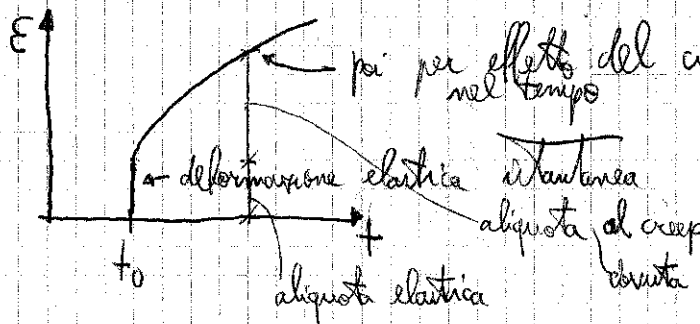 ε
poi per effetto del
nel tempo
deformazione elastica istantanea
t
aliquota al creep
dovuta
t₀
aliquota elastica